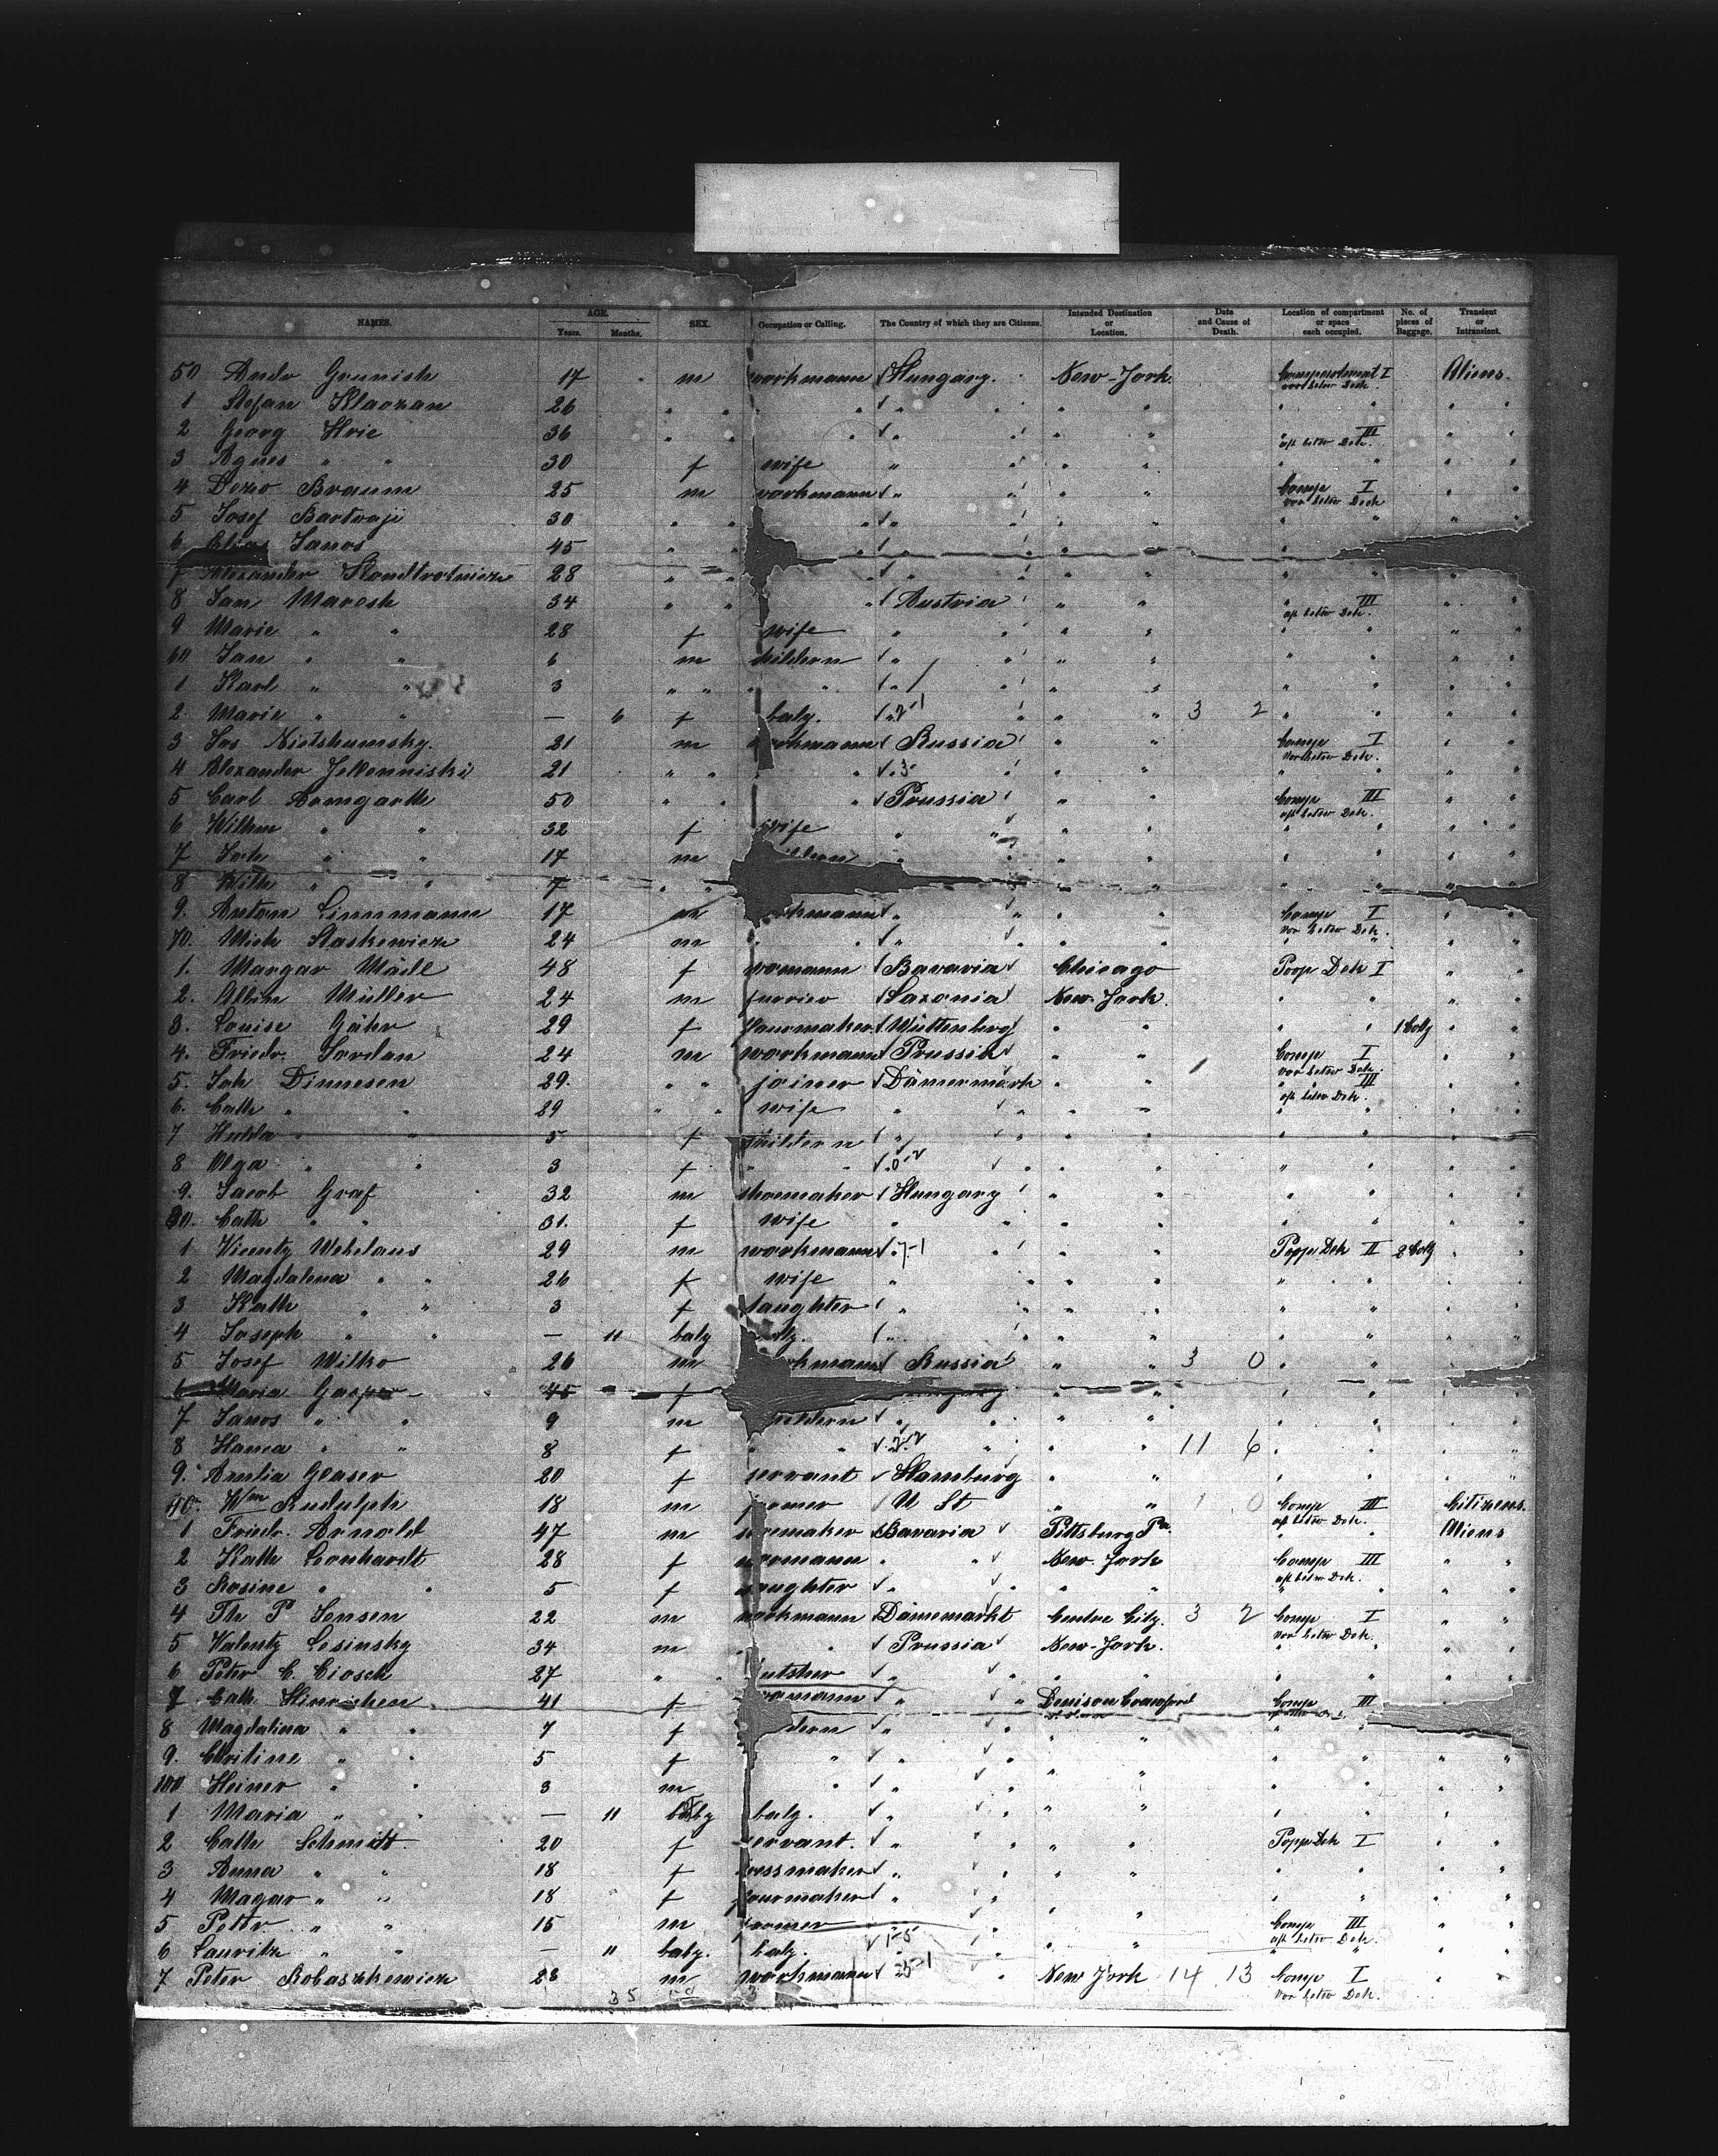 NAMES. AGE. Years. Months. SEX. Occupation or Calling. The Country of which they are Citizens. Intended Destination or Location. Date and Cause of Death. Location of compartment or space each occupied. No. of pieces of Baggage. Transient or Intransient.
50 Andr Grunish 17 m workmann Hungary. New-York. Compartment I vor betw Dek Aliens.
1 Stefan 26 " " " " "
2 Georg Hric 36 " " " " III aft betw Dek.
3 Agnes " " 30 f wife " " "
4 Dezso Braunn 25 m workmann " " Comp I vor betw Dek
5 Josef Bartvaji 30 " " " "
6 Elias Janos 45 " " " "
7 Alexander 28 " " " "
8 Jan Maresh 34 " " Austria " III aft betw Dek.
9 Marie " " 28 f wife " " "
60 Jan " " 6 m childern " " "
1 Karl " " 3 " " " " "
2 Marie " " — 6 f baby. " 2-1 " 3 2 "
3 Jos Nietshumsky. 21 m workmann Russia " Comp I vor betw Dek.
4 Alexander Jellenniski 21 " " " 3 " "
5 Carl Armgarth 50 " " Prussia " Comp III aft betw Dek.
6 Wilhm " " 32 f wife " " "
7 Joch " " 17 m childern " " "
8 Wilh " " 7 " " " " "
9. Anton Linnmann 17 m workmann " " Comp I vor betw Dek.
70. Mich Staskewicz 24 m " " " "
1. Margar Mädl 48 f womann Bavaria Chicago Poop Dek I
2. Albin Müller 24 m furrier Saxonia New-York. "
3. Louise Gähr 29 f Württenberg " " 1 Colly
4. Friedr. Jordan 24 m workmann Prussia " Comp I vor betw Dek.
5. Joh Dinnesen 29. " joiner Dännermark " III aft betw Dek.
6. Cath " " 29 " wife " " "
7 Hulda " " 5 f childern " " "
8 Olga " " 3 f " " 0-2 " "
9. Jacob Graf 32 m shoemaker Hungary " "
80. Cath " " 31. f wife " " "
1 Vicenty Wehelaus 29 m workmann " 7-1 " Popp Dek II 2 Colly
2 Magdalena " " 26 f wife " " "
3 Kath " " 3 f daughter " " "
4 Joseph " " — 11 baby baby. " " "
5 Josef Wilko 26 m workmann Russia " 3 0 "
6 Maria Gasper 45 f Hungary " "
7 Janos " " 9 m childern " " "
8 Hanna " " 8 f " " 2-2 " 11 6 "
9. Amlia Glaser 20 f servant Hamburg " "
90. Wm Rudolph 18 m farmer U St " 1 0 Comp III aft betw Dek. Citizens.
1 Friedr. Arnold 47 m shoemaker Bavaria Pittsburg Pa. " Aliens
2 Kath Leonhardt 28 f womann " New-York Comp III aft betw Dek.
3 Rosine " " 5 f daughter " " "
4 Th P Jensen 22 m workmann Dännemarkt Centre City. 3 2 Comp I vor betw Dek.
5 Valenty Lesinsky 34 m " Prussia New-York. "
6 Peter C. Ciosch 27 " butsher " " "
7 Cath. Hinrichsen 41 f womann " Denison Crawford Comp III
8 Magdalina " " 7 f childern " " "
9. Christine " " 5 f " " " "
100 Heiner " " 3 m " " " "
1 Maria " " — 11 baby baby. " " "
2 Cath Schmidt 20 f servant. " " Popp Dek I
3 Anna " " 18 f dressmaker " " "
4 Magar " " 18 f " " "
5 Peter " " 15 m farmer " " Comp III aft betw Dek.
6 Lauritz " " — 11 baby. baby. 1-5 " "
7 Peter Robaszkewicz 28 m workmann 25-1 New York 14 13 Comp I vor betw Dek.
35 3